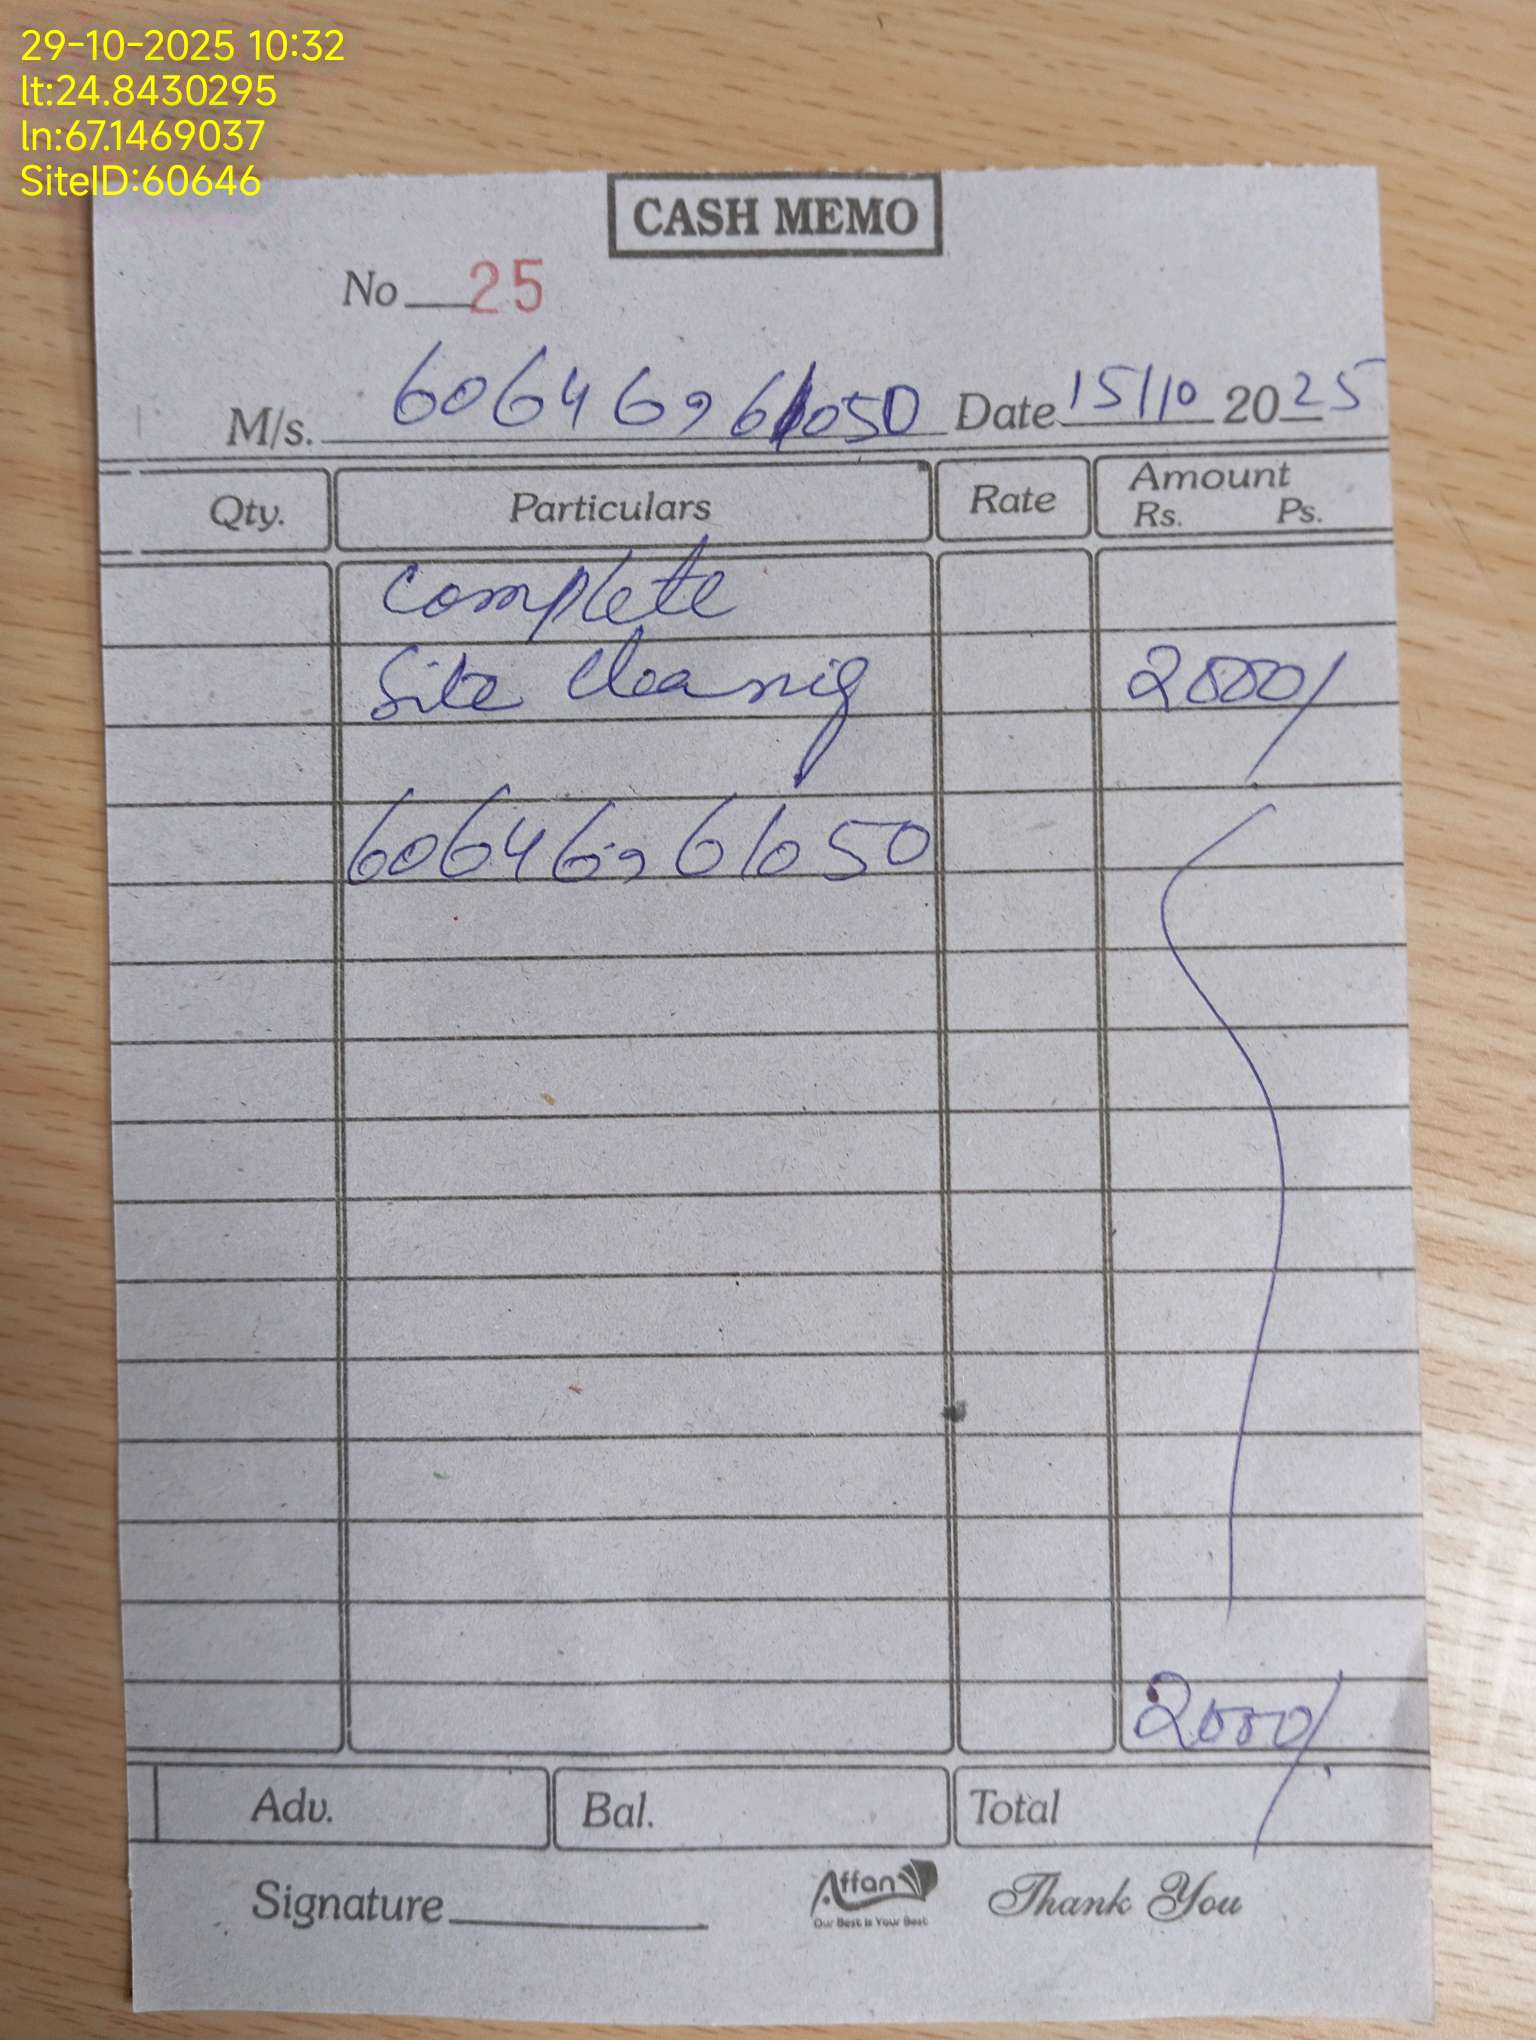 29-10-2025 10:32
lt:24.8430295
ln:67.1469037
SiteID:60646
CASH MEMO
No 25
M/s. 60646 69 61050 Date 15/10 2025
Qty. Particulars Rate Amount
Rs. Ps.
Complete
Site Cleanig 2000/
60646 69 61050
2000/
Adv. Bal. Total
Signature Affan Thank You
Our Best is Your Best